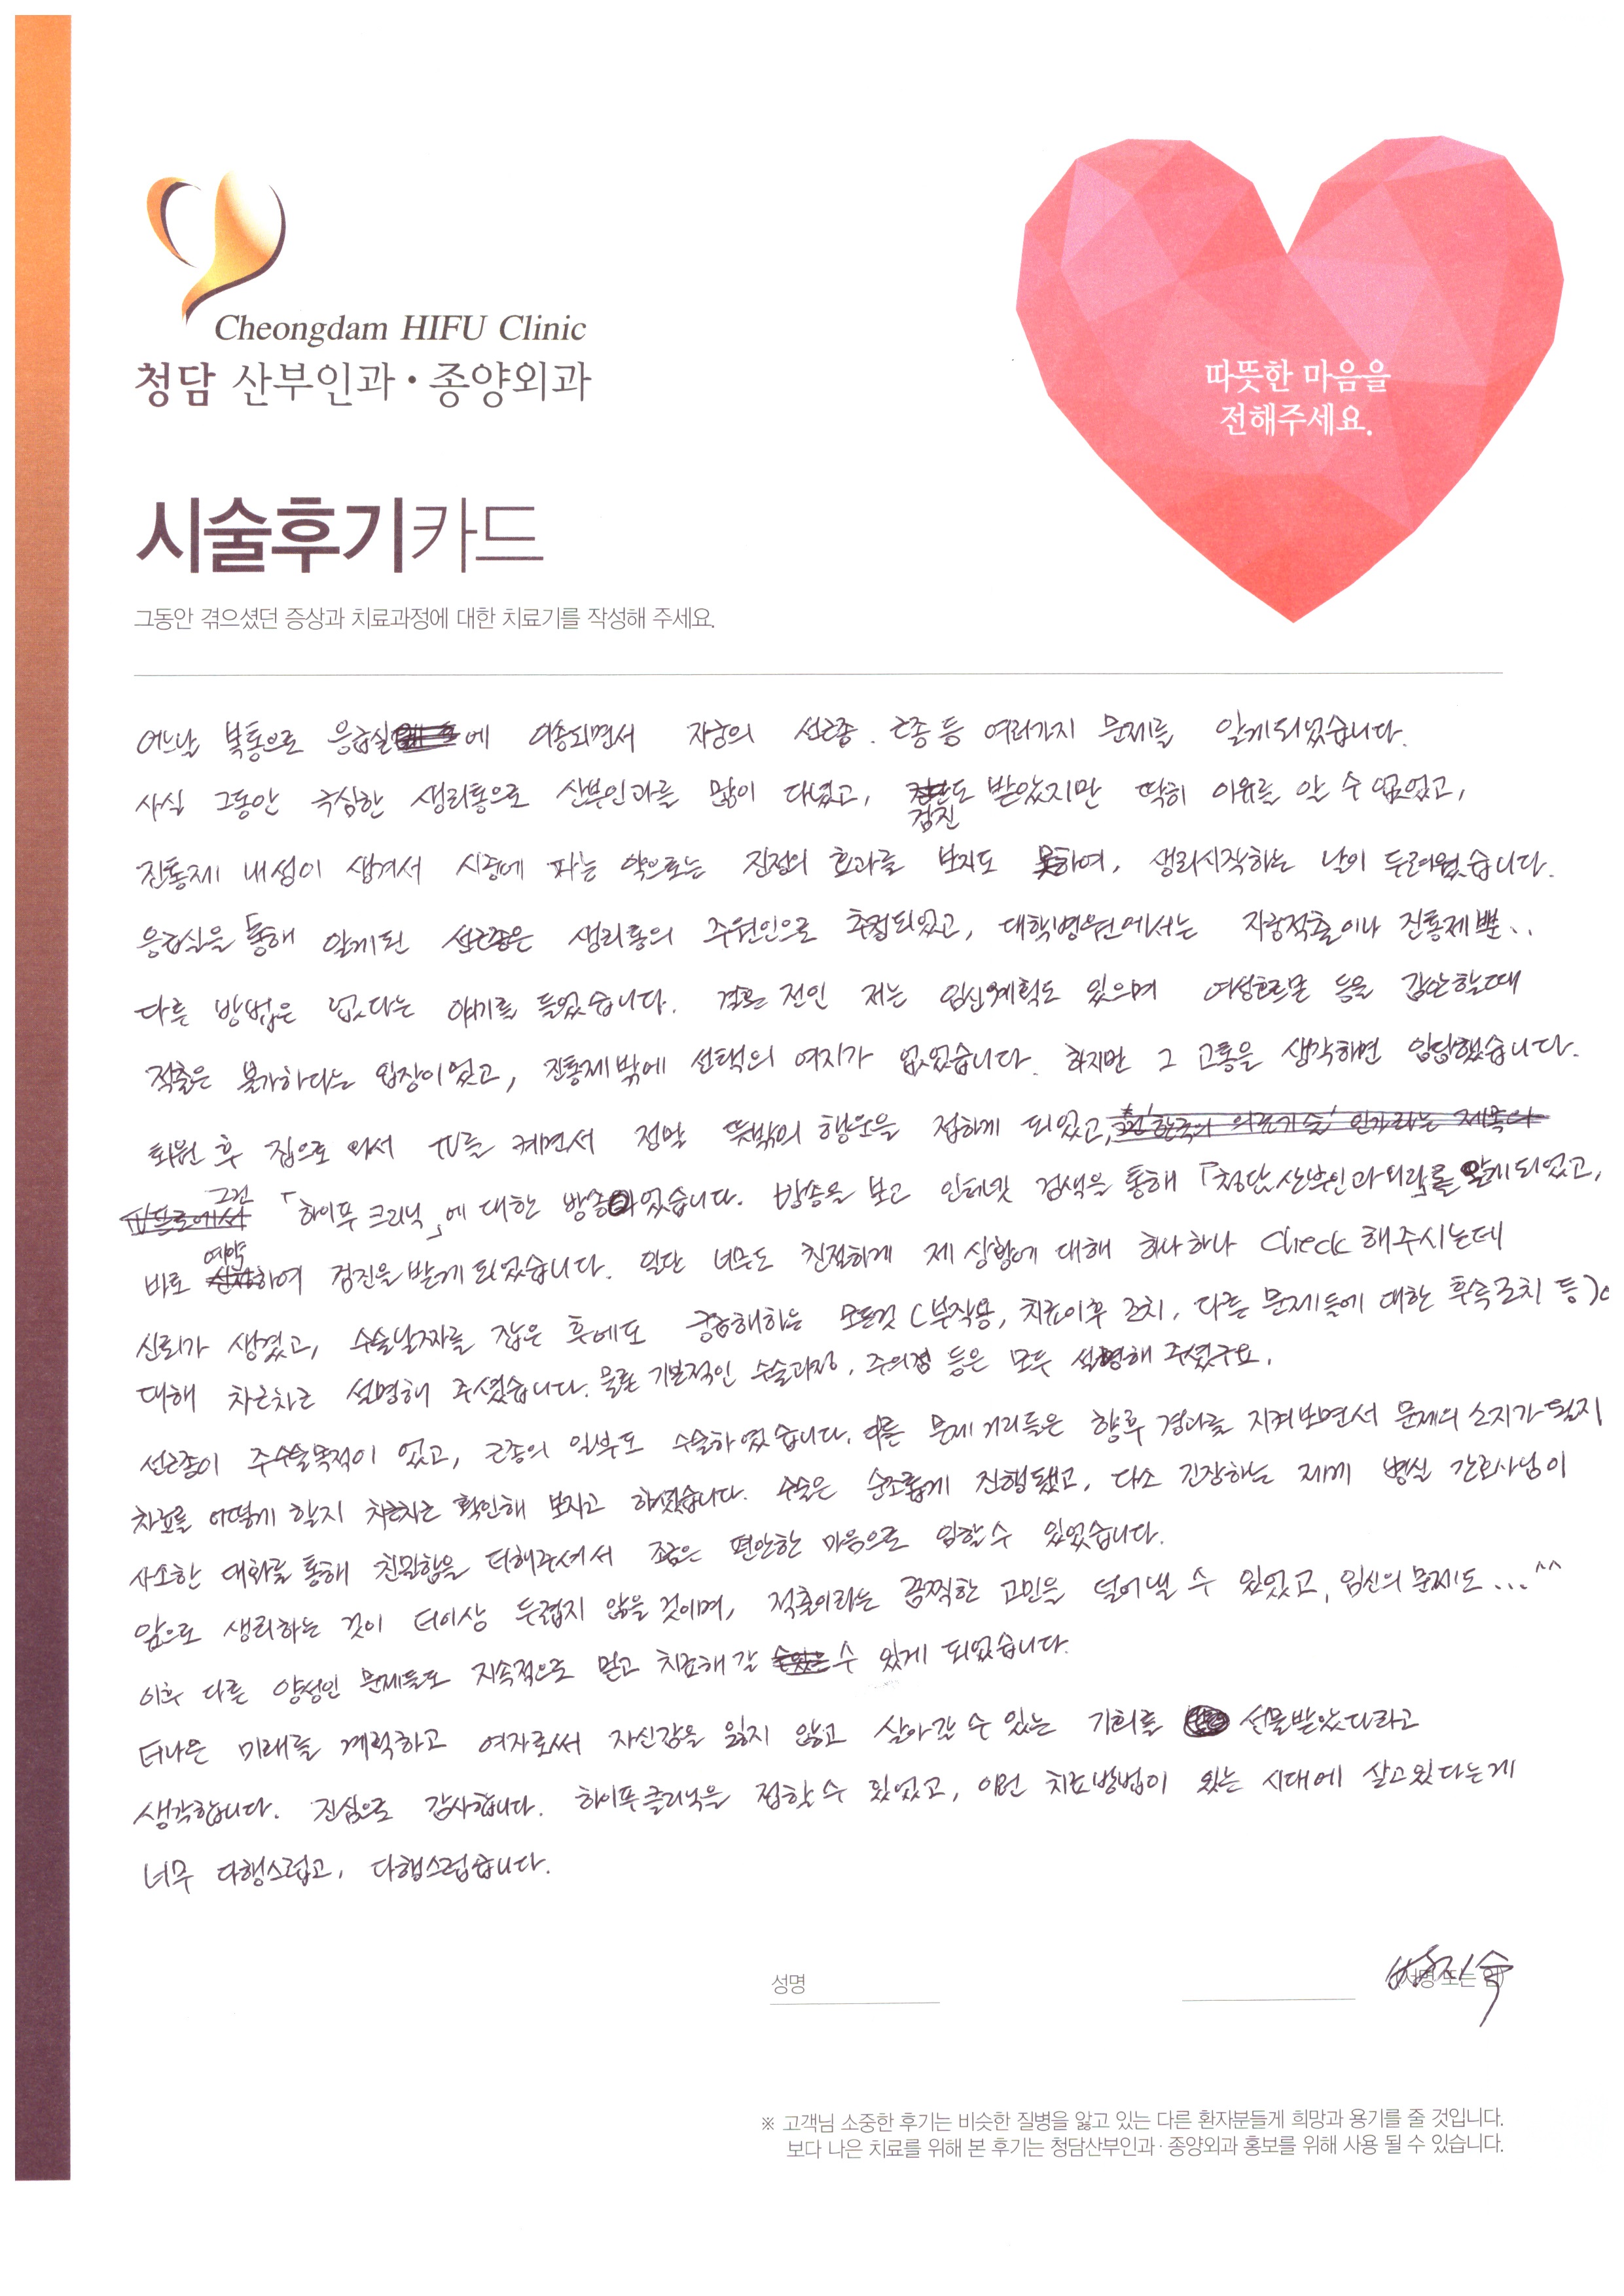 Cheongdam HIFU Clinic
청담 산부인과·종양외과
따뜻한 마음을
전해주세요.
시술후기카드
그동안 겪으셨던 증상과 치료과정에 대한 치료기를 작성해 주세요.
어느날 복통으로 응급실에 이송되면서 자궁의 선근종. 근종 등 여러가지 문제를 알게되었습니다.
사실 그동안 극심한 생리통으로 산부인과를 많이 다녔고, 검진도 받았지만 딱히 이유를 알 수 없었고,
진통제 내성이 생겨서 시중에 파는 약으로는 진정의 효과를 보지도 못하여, 생리시작하는 날이 두려웠습니다.
응급실을 통해 알게된 선근종은 생리통의 주원인으로 추정되었고, 대학병원에서는 자궁적출이나 진통제 뿐..
다른 방법은 없다는 얘기를 들었습니다. 결혼 전인 저는 임신계획도 있으며 여성호르몬 등을 감안할때
적출은 불가하다는 입장이었고, 진통제밖에 선택의 여지가 없었습니다. 하지만 그 고통을 생각하면 암담했습니다.
퇴원 후 집으로 와서 TV를 켜면서 정말 뜻밖의 행운을 접하게 되었고,
그건 「하이푸 크리닉」에 대한 방송이었습니다. 방송을 보고 인터넷 검색을 통해 「청담산부인과외과」를 알게되었고,
바로 예약하여 검진을 받게 되었습니다. 일단 너무도 친절하게 제 상황에 대해 하나하나 Check 해주시는데
신뢰가 생겼고, 수술날짜를 잡은 후에도 궁금해하는 모든것 (부작용, 치료이후 조치, 다른 문제들에 대한 후속조치 등)에
대해 차근차근 설명해 주셨습니다. 물론 기본적인 수술과정, 주의점 등은 모두 설명해 주셨구요.
선근종이 주수술목적이 었고, 근종의 일부도 수술하였습니다. 다른 문제거리들은 향후 경과를 지켜보면서 문제의 소지가 될지
치료를 어떻게 할지 차근차근 확인해 보자고 하셨습니다. 수술은 순조롭게 진행됐고, 다소 긴장하는 제게 병실 간호사님이
사소한 대화를 통해 친밀함을 더해주셔서 조금은 편안한 마음으로 임할수 있었습니다.
앞으로 생리하는 것이 더이상 두렵지 않을 것이며, 적출이라는 끔찍한 고민을 덜어낼 수 있었고, 임신의 문제도 ...^^
이후 다른 양성인 문제들도 지속적으로 믿고 치료해 갈 수 있게 되었습니다.
더나은 미래를 계획하고 여자로써 자신감을 잃지 않고 살아갈 수 있는 기회를 선물받았다라고
생각합니다. 진심으로 감사합니다. 하이푸클리닉을 접할수 있었고, 이런 치료방법이 있는 시대에 살고있다는게
너무 다행스럽고, 다행스럽습니다.
성명
※ 고객님 소중한 후기는 비슷한 질병을 앓고 있는 다른 환자분들게 희망과 용기를 줄 것입니다.
보다 나은 치료를 위해 본 후기는 청담산부인과·종양외과 홍보를 위해 사용 될 수 있습니다.